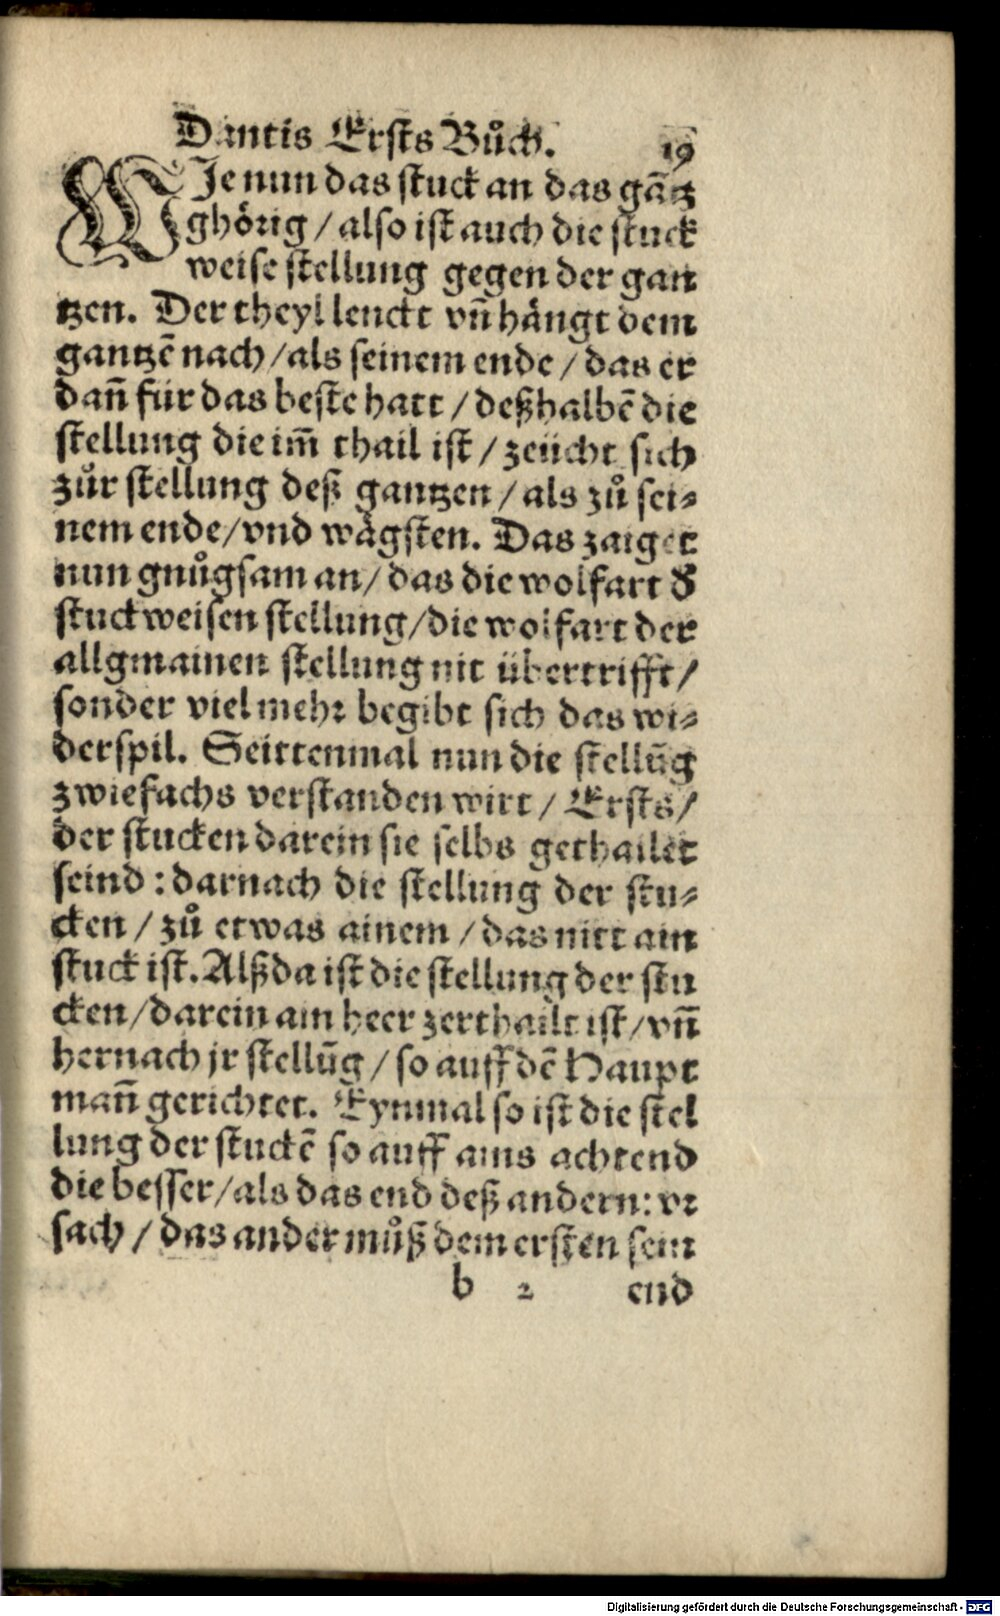 Dantis Ersts Bůch. 19
WJe nun das stuck an das gātz
ghörig / also ist auch die stuck
weise stellung gegen der gan
tzen. Der theyl lenckt vñ hängt dem
gantzē nach / als seinem ende / das er
dañ für das beste hatt / deßhalbē die
stellung die im̃ thail ist / zeücht sich
zůr stellung deß gantzen / als zů sei⸗
nem ende / vnd wägsten. Das zaiget
nun gnůgsam an / das die wolfart d̕
stuckweisen stellung / die wolfart der
allgmainen stellung nit übertrifft /
sonder viel mehr begibt sich das wi⸗
derspil. Seittenmal nun die stellūg
zwiefachs verstanden wirt / Ersts /
der stucken darein sie selbs gethailet
seind : darnach die stellung der stu⸗
cken / zů etwas ainem / das nitt ain
stuck ist. Alß da ist die stellung der stu
cken / darein ain heer zerthailt ist / vñ
hernach jr stellūg / so auff dē Haupt
mañ gerichtet. Eynmal so ist die stel
lung der stuckē so auff ains achtend
die besser / als das end deß andern: vr
sach / das ander můß dem ersten sein
b 2 end
Digitalisierung gefördert durch die Deutsche Forschungsgemeinschaft - DFG